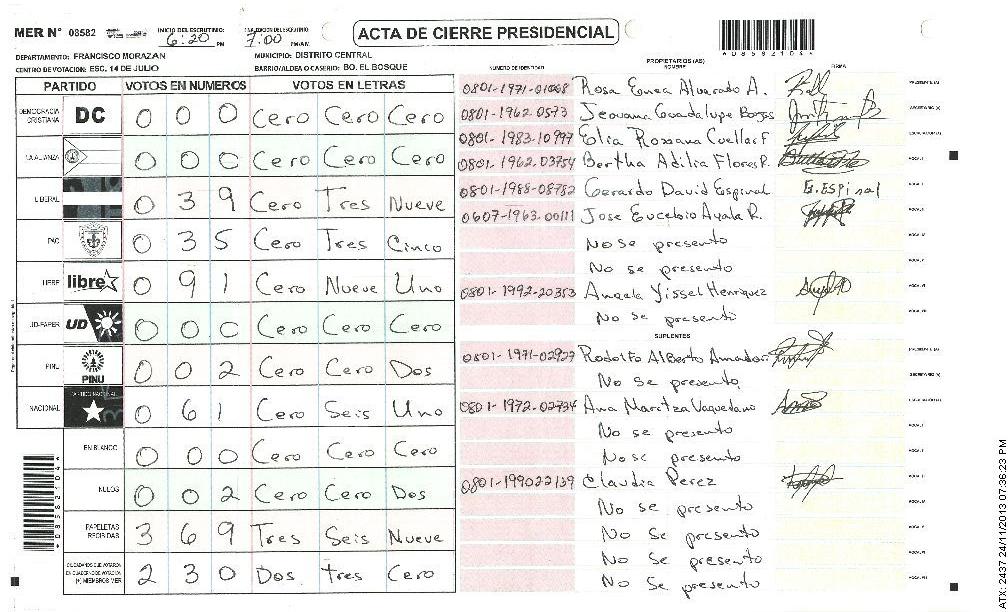 MER N° 08582 INICIO DEL ESCRUTINIO: 6:20 PM 7:00 PM/AM ACTA DE CIERRE PRESIDENCIAL
DEPARTAMENTO: FRANCISCO MORAZAN MUNICIPIO: DISTRITO CENTRAL
CENTRO DE VOTACION: ESC. 14 DE JULIO BARRIO/ALDEA O CASERIO: BO. EL BOSQUE
PARTIDO VOTOS EN NUMEROS VOTOS EN LETRAS
DEMOCRACIA CRISTIANA DC 0 0 0 Cero Cero Cero
LA ALIANZA 0 0 0 Cero Cero Cero
LIBERAL 0 3 9 Cero Tres Nueve
PAC 0 3 5 Cero Tres Cinco
LIBRE libre 0 9 1 Cero Nueve Uno
UD-FAPER UD 0 0 0 Cero Cero Cero
PINU PINU 0 0 2 Cero Cero Dos
NACIONAL PARTIDO NACIONAL 0 6 1 Cero Seis Uno
EN BLANCO 0 0 0 Cero Cero Cero
NULOS 0 0 2 Cero Cero Dos
PAPELETAS RECIBIDAS 3 6 9 Tres Seis Nueve
CIUDADANOS QUE VOTARON EN CUADERNO DE VOTACION (+) MIEMBROS MER 2 3 0 Dos Tres Cero
PROPIETARIOS (AS)
NUMERO DE IDENTIDAD NOMBRE FIRMA
0801-1971-01068 Rosa Enea Alvarado A.
0801-1962-0573 Jeovana Guadalupe Borjas
0801-1983-10997 Elia Rossana Cuellar F
0801-1962-03754 Bertha Adilia Flores R.
0801-1988-08782 Gerardo David Espinal G.Espinal
0607-1963-00111 Jose Eucebio Ayala R.
No se presento
No se presento
0801-1992-20353 Angela Yissel Henriquez
No se presento
SUPLENTES
0801-1971-02927 Rodolfo Alberto Amador
No se presento
0801-1972-02734 Ana Maritza Vaquedano
No se presento
No se presento
0801-199022139 Claudia Perez
No se presento
No se presento
No se presento
No se presento
ATX-2437 24/11/2013 07:36:23 PM